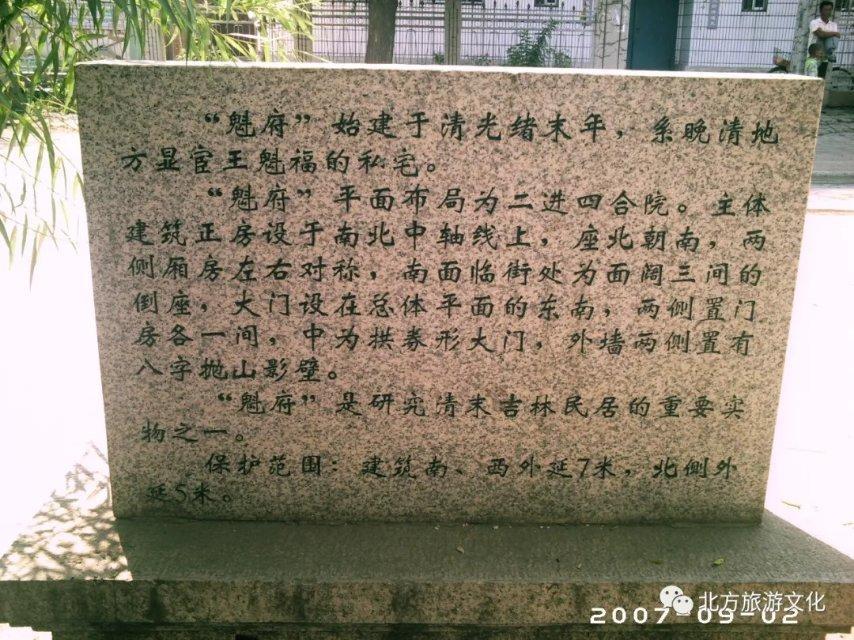 “魁府”始建于清光绪末年，系晚清地
方显宦王魁福的私宅。
“魁府”平面布局为二进四合院。主体
建筑正房设于南北中轴线上，座北朝南，两
侧厢房左右对称，南面临街处为面阔三间的
倒座，大门设在总体平面的东南，两侧置门
房各一间，中为拱券形大门，外墙两侧置有
八字抛山影壁。
“魁府”是研究清末吉林民居的重要实
物之一。
保护范围：建筑南、西外延7米，北侧外
延5米。
北方旅游文化
2007-09-02